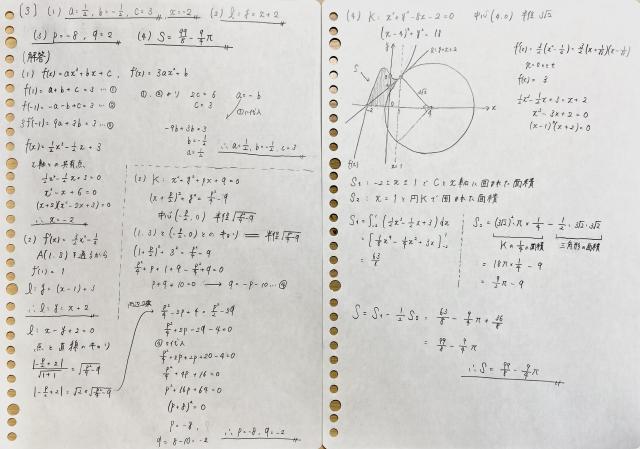 (3) (1) a=1/2, b=-1/2, c=3, x=-2 (2) l:y=x+2
(3) p=-8, q=2 (4) S=99/8-9/4π
(解答)
(1) f(x)=ax³+bx+c, f'(x)=3ax²+b
f(1)=a+b+c=3 …①
f(-1)=-a-b+c=3 …②
①, ②より 2c=6
c=3
a=-b
-9b+3b=3
b=-1/2
a=1/2
∴a=1/2, b=-1/2, c=3
f(x)=1/2x³-1/2x+3
x軸との共有点
1/2x³-1/2x+3=0
x³-x+6=0
(x+2)(x²-2x+3)=0
∴x=-2
(2) f'(x)=3/2x²-1/2
A(1,3)を通るから
f'(1)=1
l:y=(x-1)+3
∴l:y=x+2
l:x-y+2=0
点と直線のキョリ
|-p/2+2|/√(1+1)=√(p²/4-q)
|-p/2+2|=√2×√(p²/4-q)
(3) K:x²+y²+px+q=0
(x+p/2)²+y²=p²/4-q
中心(-p/2,0) 半径√(p²/4-q)
(1,3)と(-p/2,0)とのキョリ=半径√(p²/4-q)
(1+p/2)²+3²=p²/4-q
p²/4+p+1+9-p²/4+q=0
p+q+10=0 → q=-p-10 …④
両辺2乗
p²/4-2p+4=p²/2-2q
p²/4+2p-2q-4=0
④を代入
p²/4+2p+2p+20-4=0
p²/4+4p+16=0
p²+16p+64=0
(p+8)²=0
p=-8,
q=8-10=-2
∴p=-8, q=-2
(4) K:x²+y²-8x-2=0 中心(4,0) 半径3√2
(x-4)²+y²=18
l:y=x+2
S
3√2
-2
x
f(x)
x=1
f(x)=3
1/2x³-1/2x+3=x+2
x³-3x+2=0
(x-1)²(x+2)=0
S₁:-2≦x≦1でCとx軸に囲まれた面積
S₂:x=1と円Kで囲まれた面積
S₁=∫₋₂¹(1/2x³-1/2x+3)dx
=[1/8x⁴-1/4x²+3x]₋₂¹
=63/8
S₂=(3√2)²・π×1/4-1/2・3√2・3√2
Kの1/4の面積 三角形の面積
=18π×1/4-9
=9/2π-9
S=S₁-1/2S₂=63/8-9/4π+36/8
=99/8-9/4π
∴S=99/8-9/4π